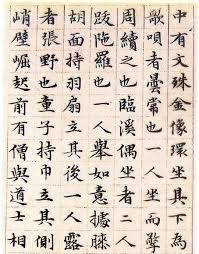 中有文殊金像環坐其下為
歌唄者曇常也一人坐而擎
周續之也臨溪偶坐者二
跋陀羅也一人舉如意據膝
胡面持羽扇立其後一人露
者張野也童子持巾立其側
峭壁崛起前有僧與道士相